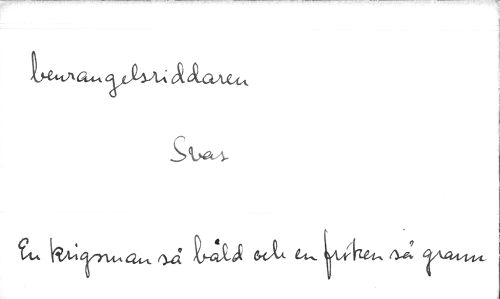 benrangelsriddaren
Svas
En krigsman så båld och en fröken så grann